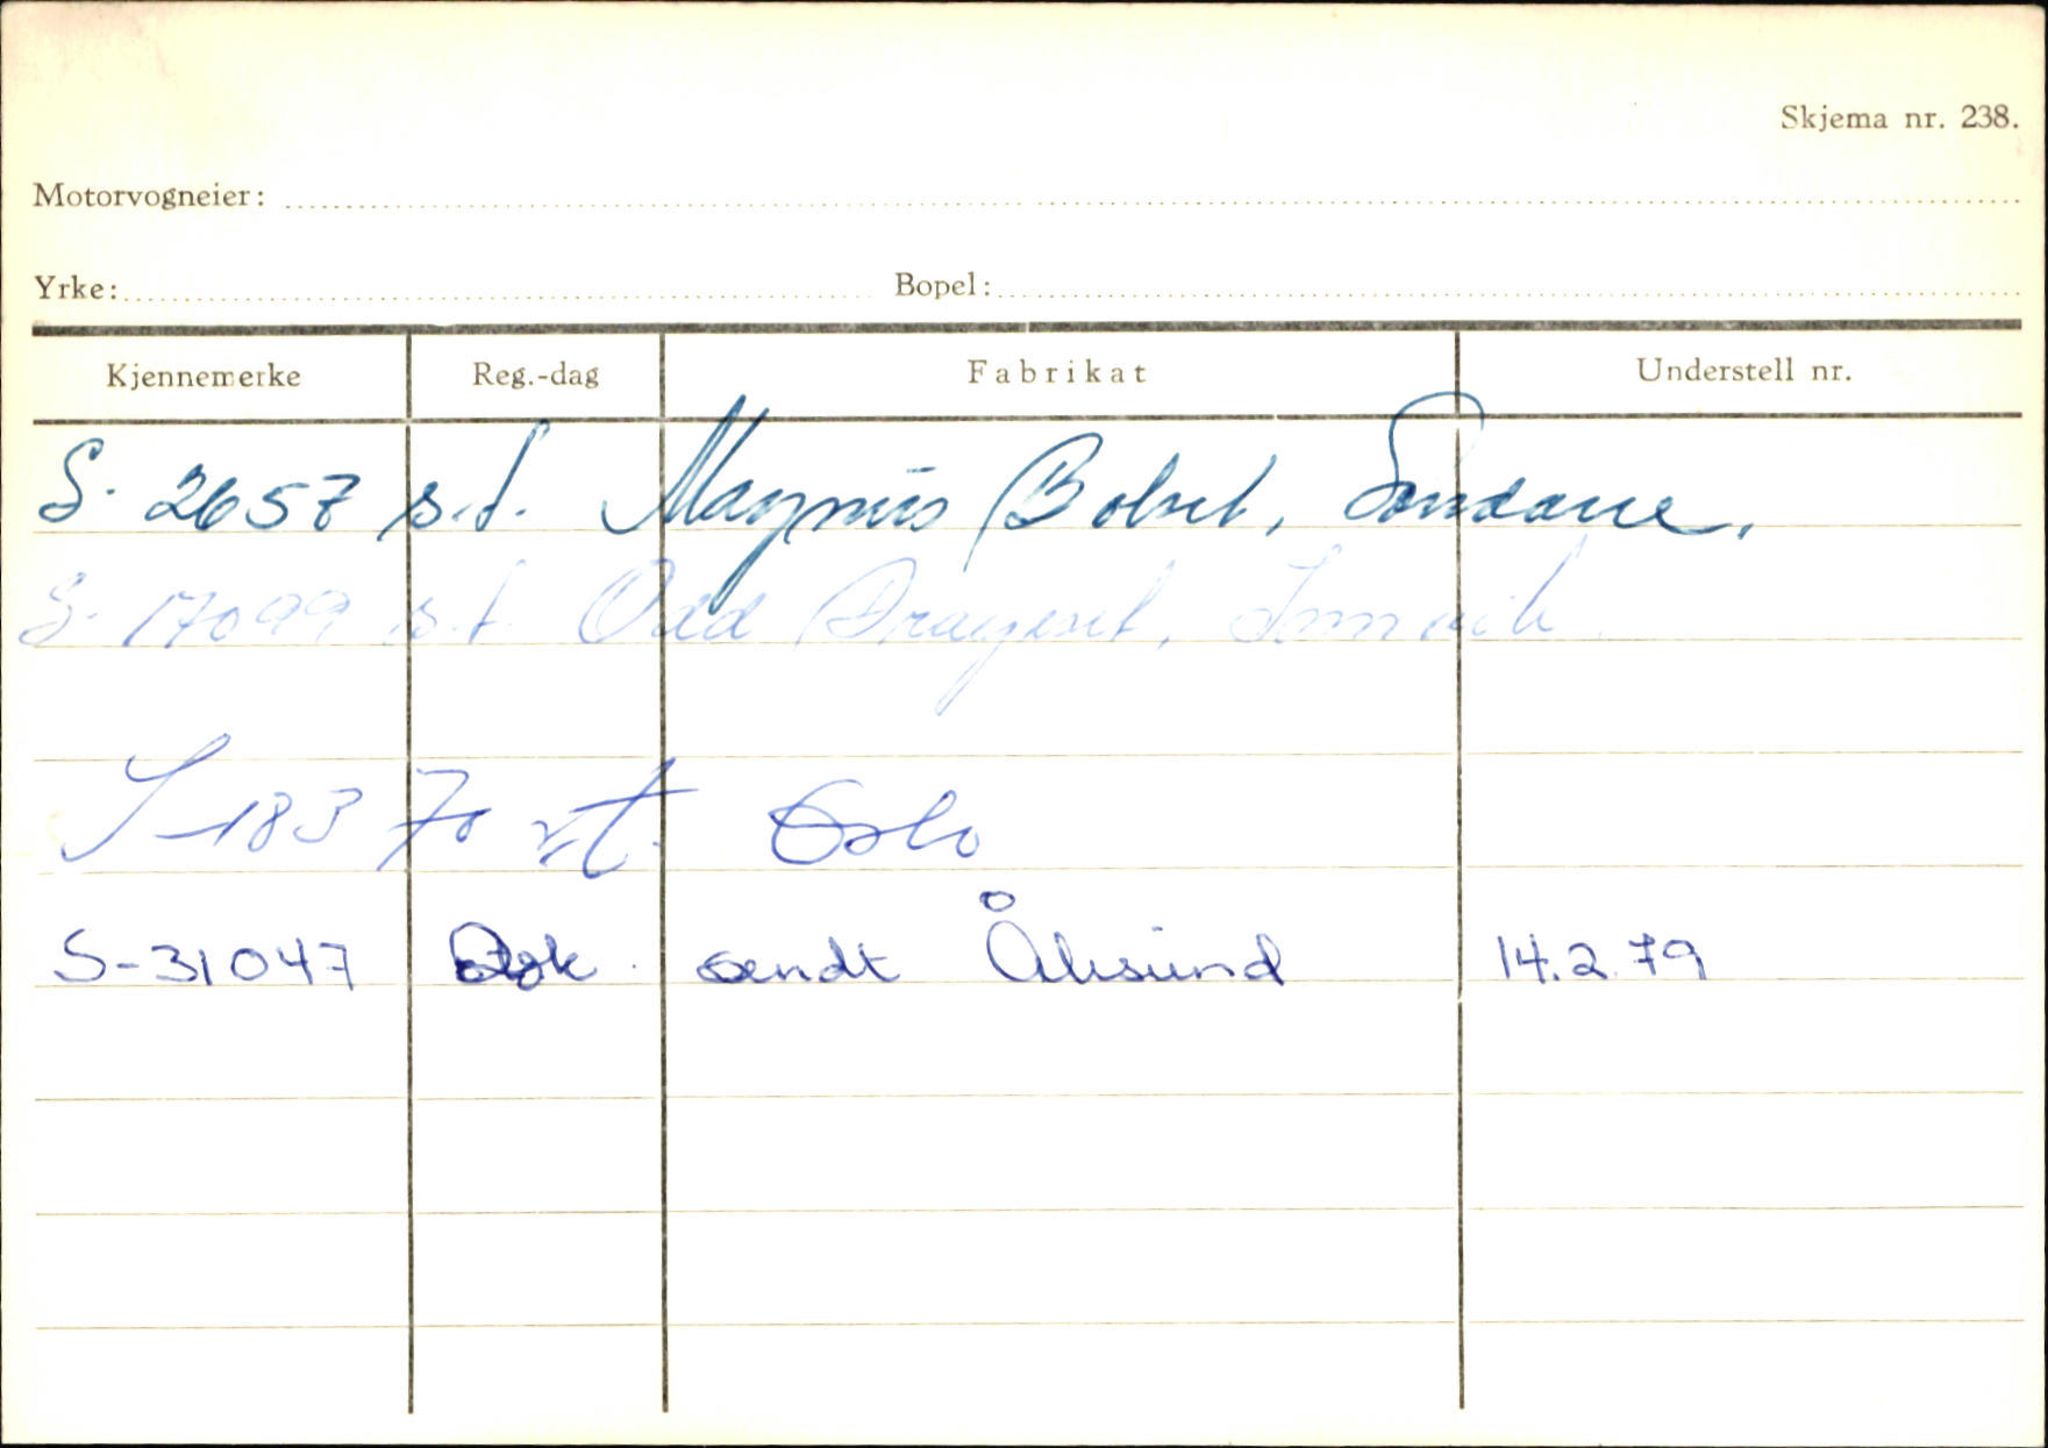 Skjema nr. 238.
Motorvogneier:
Yrke: Bopel:
Kjennemerke Reg.-dag Fabrikat Understell nr.
S. 2657 s.t. Magnus Bolset, Sandane.
S. 17099 s.t. Odd Drageset,
S-18370 st. Oslo
S-31047 sendt Ålesund 14.2.79